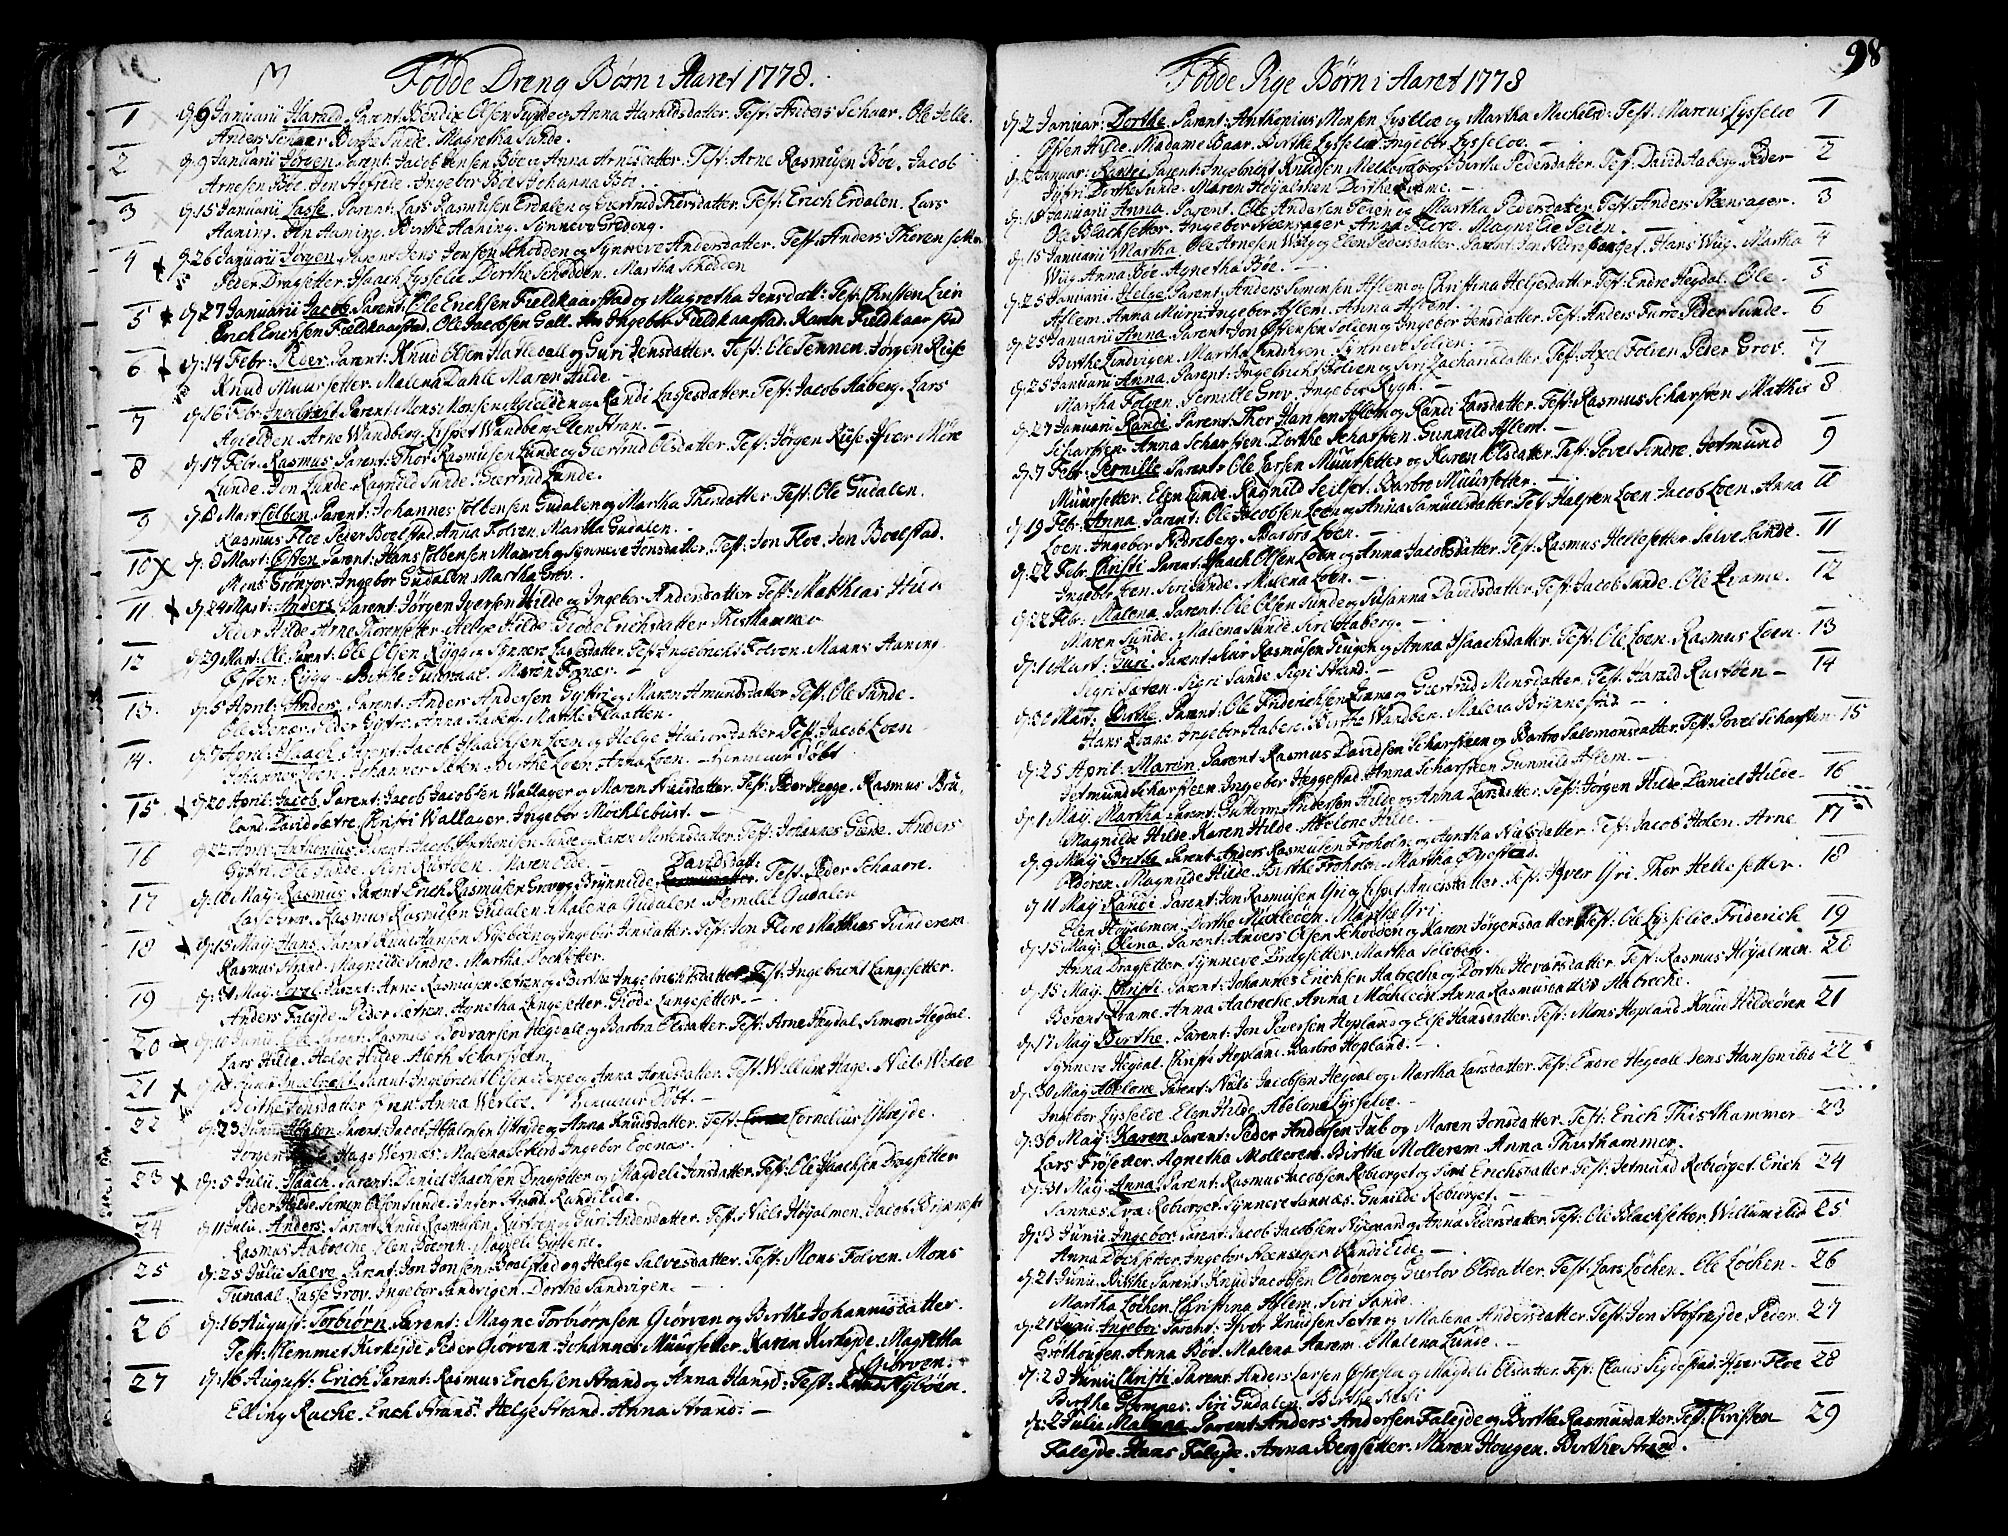 98
Fødde Dreng Børn i Aaret 1778.
1 d: 6 Januarii Harald Parent: Bendix Olsen Sunde og Anna Haraldsdatter. Test: Anders Schaar. Ole Helle.
Anders Schaar. Birthe Sunde. Magretha Sunde.
2 d: 9 Januarii Jørgen. Parent: Jacob Jensen Bøe og Anna Arnesdatter. Test: Arne Rasmussen Bøe. Jacob
Arnesen Bøe. Ingebor Bøe. Johanna Bøe.
3 d: 15 Januarii Lasse. Parent: Lars Rasmusen Erdalen og Giertrud Thersdatter. Test: Erich Erdalen. Lars
Aaning. An Aaning. Birthe Aaning. Synneve Greding.
4 d: 26 Januarii Jørgen. Parent: Jens Jonsen Schødden og Synneve Andersdatter. Test: Anders Thorensetter
Peder Dragsetter. Haach Lysseloe. Dorthe Schødden. Martha Schødden
5 d: 27 Januarii Jacob. Parent: Ole Erichsen Fieldkaarstad og Magretha Jensdatt: Test: Christen Lien
Erich Erichsen Fieldkaarstad. Ole Jacobsen Gall. An Ingebor Fieldkaarstad. Karen Fieldkaarstad
6 d: 14 Febr: Peder. Parent: Knud Olsen Hatledall og Guri Jensdatter. Test: Ole Sennen. Jørgen Riise
Knud Muursetter. Malena Dahle. Maren Hilde.
7 d: 16 Febr: Ingebrigt. Parent: Mons Monsen Agielden og Randi Lassesdatter. Test: Jacob Aaberg. Lars
Agielden. Arne Wandberg. Lispet Wandberg. Elen Stran.
8 d: 17 Febr. Rasmus. Parent: Thor Rasmusen Lunde og Giertrud Olsdatter. Test: Jørgen Riise. Iver Møre
Lunde. Jon Lunde. Ragnild Sunde. Giertrud Lunde.
9 d: 8 Mart: Colben. Parent: Johannes Colbensen Gudalen og Martha Thersdatter. Test: Ole Gudalen.
Rasmus Floe. Peder Boelstad. Anna Folven. Martha Gudalen.
10 d: 8 Mart: Østen. Parent: Hans Colbensen og Synneve Jonsdatter. Test: Jon Floe. Jon Boelstad.
Mons Grønfor. Ingebor Gudalen. Martha Grov.
11 d: 24 Mart: Anders. Parent: Jørgen Iversen Hilde og Ingebor Andersdatter. Test: Matthias Hilde
Peder Hilde. Arne Thorensetter. Helge Hilde. Giøde Erichsdatter Thisthammer
12 d: 29 Mart: Ole. Parent: Ole Olsen Rygg og Synneve Lassesdatter. Test: Ingebricht Folven. Maans Aaning.
Østen Rygg. Birthe Tunaal. Maren
13 d: 5 April: Anders. Parent: Anders Andersen Gytri og Maren Amundsdatter. Test: Ole Sunde.
Ole Peder Gytri. Anna Aaberg. Marthe Flaatten.
14 d: 7 April: Haach. Parent: Jacob Haachsen Loen og Helge Halvorsdatter. Test: Jacob Loen
Johannes Loen. Johannes Sæten. Birthe Loen. Anna Loen. Hiemmedøbt
15 d: 20 April: Jacob. Parent: Jacob Jacobsen Wallager og Maren Nielsdatter. Test: Peder Hegge. Rasmus Brø,
land. David Sætre. Christi Wallaver. Ingebor Mochlebust.
16 d: 22 April: Anthonius. Parent: Jacob Anthonisen Sunde og Karen Mortensdatter. Test: Johannes Giærde. Anders
Gytri. Ole Sunde. Siri Rustøen. Maren Eide.
17 d: 10 May: Rasmus. Parent: Erich Rasmusen Grov og Brynnilde Davidsdatt: Test: Peder Schaare.
Lars Grov. Rasmus Rasmusen Gudalen. Malena Gudalen. Pernille Gudalen
18 d: 15 May: Hans. Parent: Knud Hansen Nybøen og Ingebor Jensdatter. Test: Jon Flore. Mathias Tvinderem.
Rasmus Strand. Magnilde Sindre. Martha Nochsetter.
19 d: 31 May: Povel. Parent: Arne Rasmusen Sætren og Birthe Ingebrichtsdatter. Test: Ingebricht Langesetter.
Anders Faleyde. Peder Sætren. Agnetha Langesetter. Giøde Langesetter.
20 d: 10 Junii: Ole. Parent: Rasmus Bodvarsen Hegdall og Barbra Olsdatter. Test: Arne Hegdal. Simon Hegdal.
Lars Hilde. Helge Hilde. Aleth Scharsteen.
21 d: 18 Junii: Ingebricht. Parent: Ingebricht Olsen og Anna Arnesdatter. Test: Willum Hage. Niels Werloe
Birthe Jonsdatter. Anna Werloe. Hiemmedøbt.
22 d: 23 Junii: Absalon. Parent: Jacob Absalonsen Ytreyde og Anna Knudsdatter. Test: Cornelius Ytreyde.
Jørgen Hage. Wernæs. Malena Schord. Ingebor Egenæs.
23 d: 5 Julii: Haach. Parent: Daniel Haachsen Dragsetter og Magdeli Jensdatter. Test: Ole Haachsen Dragsetter
Peder Hilde. Semen Olsen Sunde. Inger Strand. Randi Eide.
24 d: 11 Julii: Anders. Parent: Knud Rasmusen Rustøen og Guri Andersdatter. Test: Niels Høyalmen. Jacob Brynnestad
Rasmus Aabreche. Elen Magdeli
25 d: 25 Julii: Salve. Parent: Jon Jonsen Boelstad og Helge Salvesdatter. Test: Mons Folven. Mons
Tunaal. Lasse Grov. Ingebor Sandvigen. Dorthe Sandvigen.
26 d: 16 August: Torbiørn. Parent: Magne Torbiørnsen Giørven og Birthe Johannisdatter.
Test: Hemmer Kirkeyde. Peder Giørven. Johannes Muursetter. Karen Kirkeyde. Magretha
Giørven.
27 d: 16 August: Erich. Parent: Rasmus Erichsen Strand og Anna Hansd: Test: Knud Nybøen.
Elling Rache. Erich Strand. Helge Strand. Anna Strand.
Fødde Pige Børn i Aaret 1778
d: 2 Januar: Dorthe. Parent: Anthonius Monsen Lysseloe og Martha Michelsd: Test: Marcus Lysseloe 1
Østen Hilde. Madame Baar. Birthe Lysseloe. Ingebor Lysseloe.
d: 2 Januar: Randi. Parent: Ingebrigt Knudsen Melkevold og Birtha Pedersdatter. Test: David Aaberg. Peder 2
Gytri. Dorthe Sunde. Maren Høyalmen. Dorthe Qvame.
d: 18 Januarii Anna. Parent: Ole Andersen Teien og Martha Pedersdatter. Test: Anders Neensager. 3
Ole Blachsetter. Ingebor Neensager. Anna Flore. Magnilde Teien.
d: 15 Januarii Martha. Ole Arnesen Wiig og Elen Pedersdatter. Parent: Jon Nedreberget. Hans Wiig. Martha 4
Wiig. Anna Bøe. Agnetha Bøe.
d: 25 Januarii Helge. Parent: Anders Simonsen Aflem og Christina Helgesdatter. Test: Endre Hegdal. Ole 5
Aflem. Anna Muri. Ingebor Aflem. Anna Aflem.
d: 25 Januarii Anna. Parent: Jon Østensen Solien og Ingebor Jensdatter. Test: Anders Ture. Peder Sunde. 6
Birthe Sindvigen. Martha Sindvigen. Synneve Solien.
d: 25 Januarii Anna. Parent: Ingebricht Folven og Siri Zachariadatter. Test: Axel Folven. Peder Grov. 7
Martha Folven. Pernille Grov. Ingebor Rygh.
d: 27 Januarii Randi. Parent: Thor Hansen Aflem og Randi Larsdatter. Test: Rasmus Scharsten. Mathis 8
Scharsten. Anna Scharsten. Dorthe Scharsten. Gunnild Aflem.
d: 7 Febr: Pernille. Parent: Ole Larsen Muursetter og Karen Olsdatter. Test: Povel Sindre. Jetmund 9
Muursetter. Elen Lunde. Ragnild Seilset. Barbro Muursetter.
d: 19 Febr: Anna. Parent: Ole Jacobsen Loen og Anna Samuelsdatter. Test: Halsten Loen. Jacob Loen. Anna 10
Loen. Ingebor Nedreberg. Barbro Loen.
d: 22 Febr: Christi. Parent: Haach Olsen Loen og Anna Jacobsdatter. Test: Rasmus Hellesetter. Salve Sunde. 11
Ingebor Loen. Siri Sande. Malena Loen.
d: 22 Febr: Malena. Parent: Ole Olsen Sunde og Susanna Davidsdatter. Test: Jacob Sunde. Ole Qvame. 12
Maren Sunde. Malena Sunde. Siri Aaberg.
d: 1 Mart: Guri. Parent: Rasmusen Teugen og Anna Haachsdatter. Test: Ole Loen. Rasmus Loen. 13
Sigri Sæten. Sigri Sande. Sigri Strand.
d: 20 Mart: Birthe. Parent: Ole Friderichsen Qvame og Giertrud Monsdatter. Test: Harald Rustøen 14
Hans Qvame. Ingebor Aaberg. Birthe Wandberg. Malena Brynnestad
d: 25 April: Maren. Parent: Rasmus Davidsen Scharsteen og Barbro Salomonsdatter. Test: Povel Scharsten. 15
Jetmund Scharsteen. Ingebor Heggestad. Anna Scharsteen. Gunnild Aflem.
d: 1 May: Martha. Parent: Guttorm Andersen Hilde og Anna Larsdatter. Test: Jørgen Hilde. Daniel Hilde. 16
Magnilde Hilde. Karen Hilde. Abelone Hilde.
d: 9 May: Birthe. Parent: Anders Rasmusen Froholm og Agnetha Nielsdatter. Test: Jacob Holen. Arne 17
Oldøren. Magnilde Hilde. Birthe Froholm. Martha
d: 11 May: Randi. Parent: Jon Rasmusen Yri og Lispet Andersdatter. Test: Iver Yri. Thor Hellesetter. 18
Elen Høyalmen. Dorthe Michleøen. Marthe Yri.
d: 15 May: Olena. Parent: Anders Olsen Schødden og Karen Jørgensdatter. Test: Ole Lysseloe. Friderich 19
Anna Dragsetter. Synneve Bridgsetter. Martha Soleberg.
d: 15 May: Christi. Parent: Johannes Erichsen Aabreche og Dorthe Hovarsdatter. Test: Rasmus Høyalmen. 20
Berent Qvame. Anna Aabreche. Anna Mochleøen. Anna Rasmusdatter Aabreche.
d: 17 May: Berthe. Parent: Jon Pedersen Hopland og Else Hansdatter. Test: Mons Hopland. Knud Hildeøren 21
Synneve Hegdal. Christi Hopland. Barbro Hopland.
d: 30 May: Abelone. Parent: Niels Jacobsen Hegdal og Martha Larsdatter. Test: Endre Hegdall. Jens Hansen ibid 22
Ingebor Lysseloe. Elen Hilde. Abelone Lysseloe.
d: 30 May: Karen. Parent: Peder Andersen og Maren Jonsdatter. Test: Erich Thisthammer 23
Lars Frøsetter. Agnetha Mollerem. Birthe Mollerem. Anna Thisthammer.
d: 31 May: Anna. Parent: Rasmus Jacobsen Robørget og Siri Erichsdatter. Test: Jetmund Robiørget. Erich 24
Sannes. Eva Roborget. Synneve Sannæs. Gunilde Roborget.
d: 3 Junii: Ingebor. Parent: Jacob Jacobsen Nygaard og Anna Pedersdatter. Test: Ole Blachsetter. Willum ibid 25
Anna Dochsetter. Ingebor Neensager. Randi Eide.
d: 21 Junii: Birthe. Parent: Knud Jacobsen Oldøren og Gierløv Olsdatter. Test: Lars Løchen. Ole Løchen. 26
Martha Løchen. Christina Aflem. Siri Sande.
d: 21 Junii: Ingebor. Parent: Iver Knudsen Sætre og Malena Andersdatter. Test: Jon Stofreyde. Peder 27
Anna Bøe. Malena Aarem. Malena Lunde.
d: 23 Junii: Christi. Parent: Anders Larsen og Magdeli Olsdatter. Test: Claus Sigdestad. Iver Floe 28
Birthe Glomnes. Siri Gudalen. Birthe
d: 2 Julii: Malena. Parent: Anders Andersen Faleyde og Birthe Rasmusdatter. Test: Christen 29
Faleyde. Hans Faleyde. Anna Bergsetter. Maren Hougen. Birthe Strand.